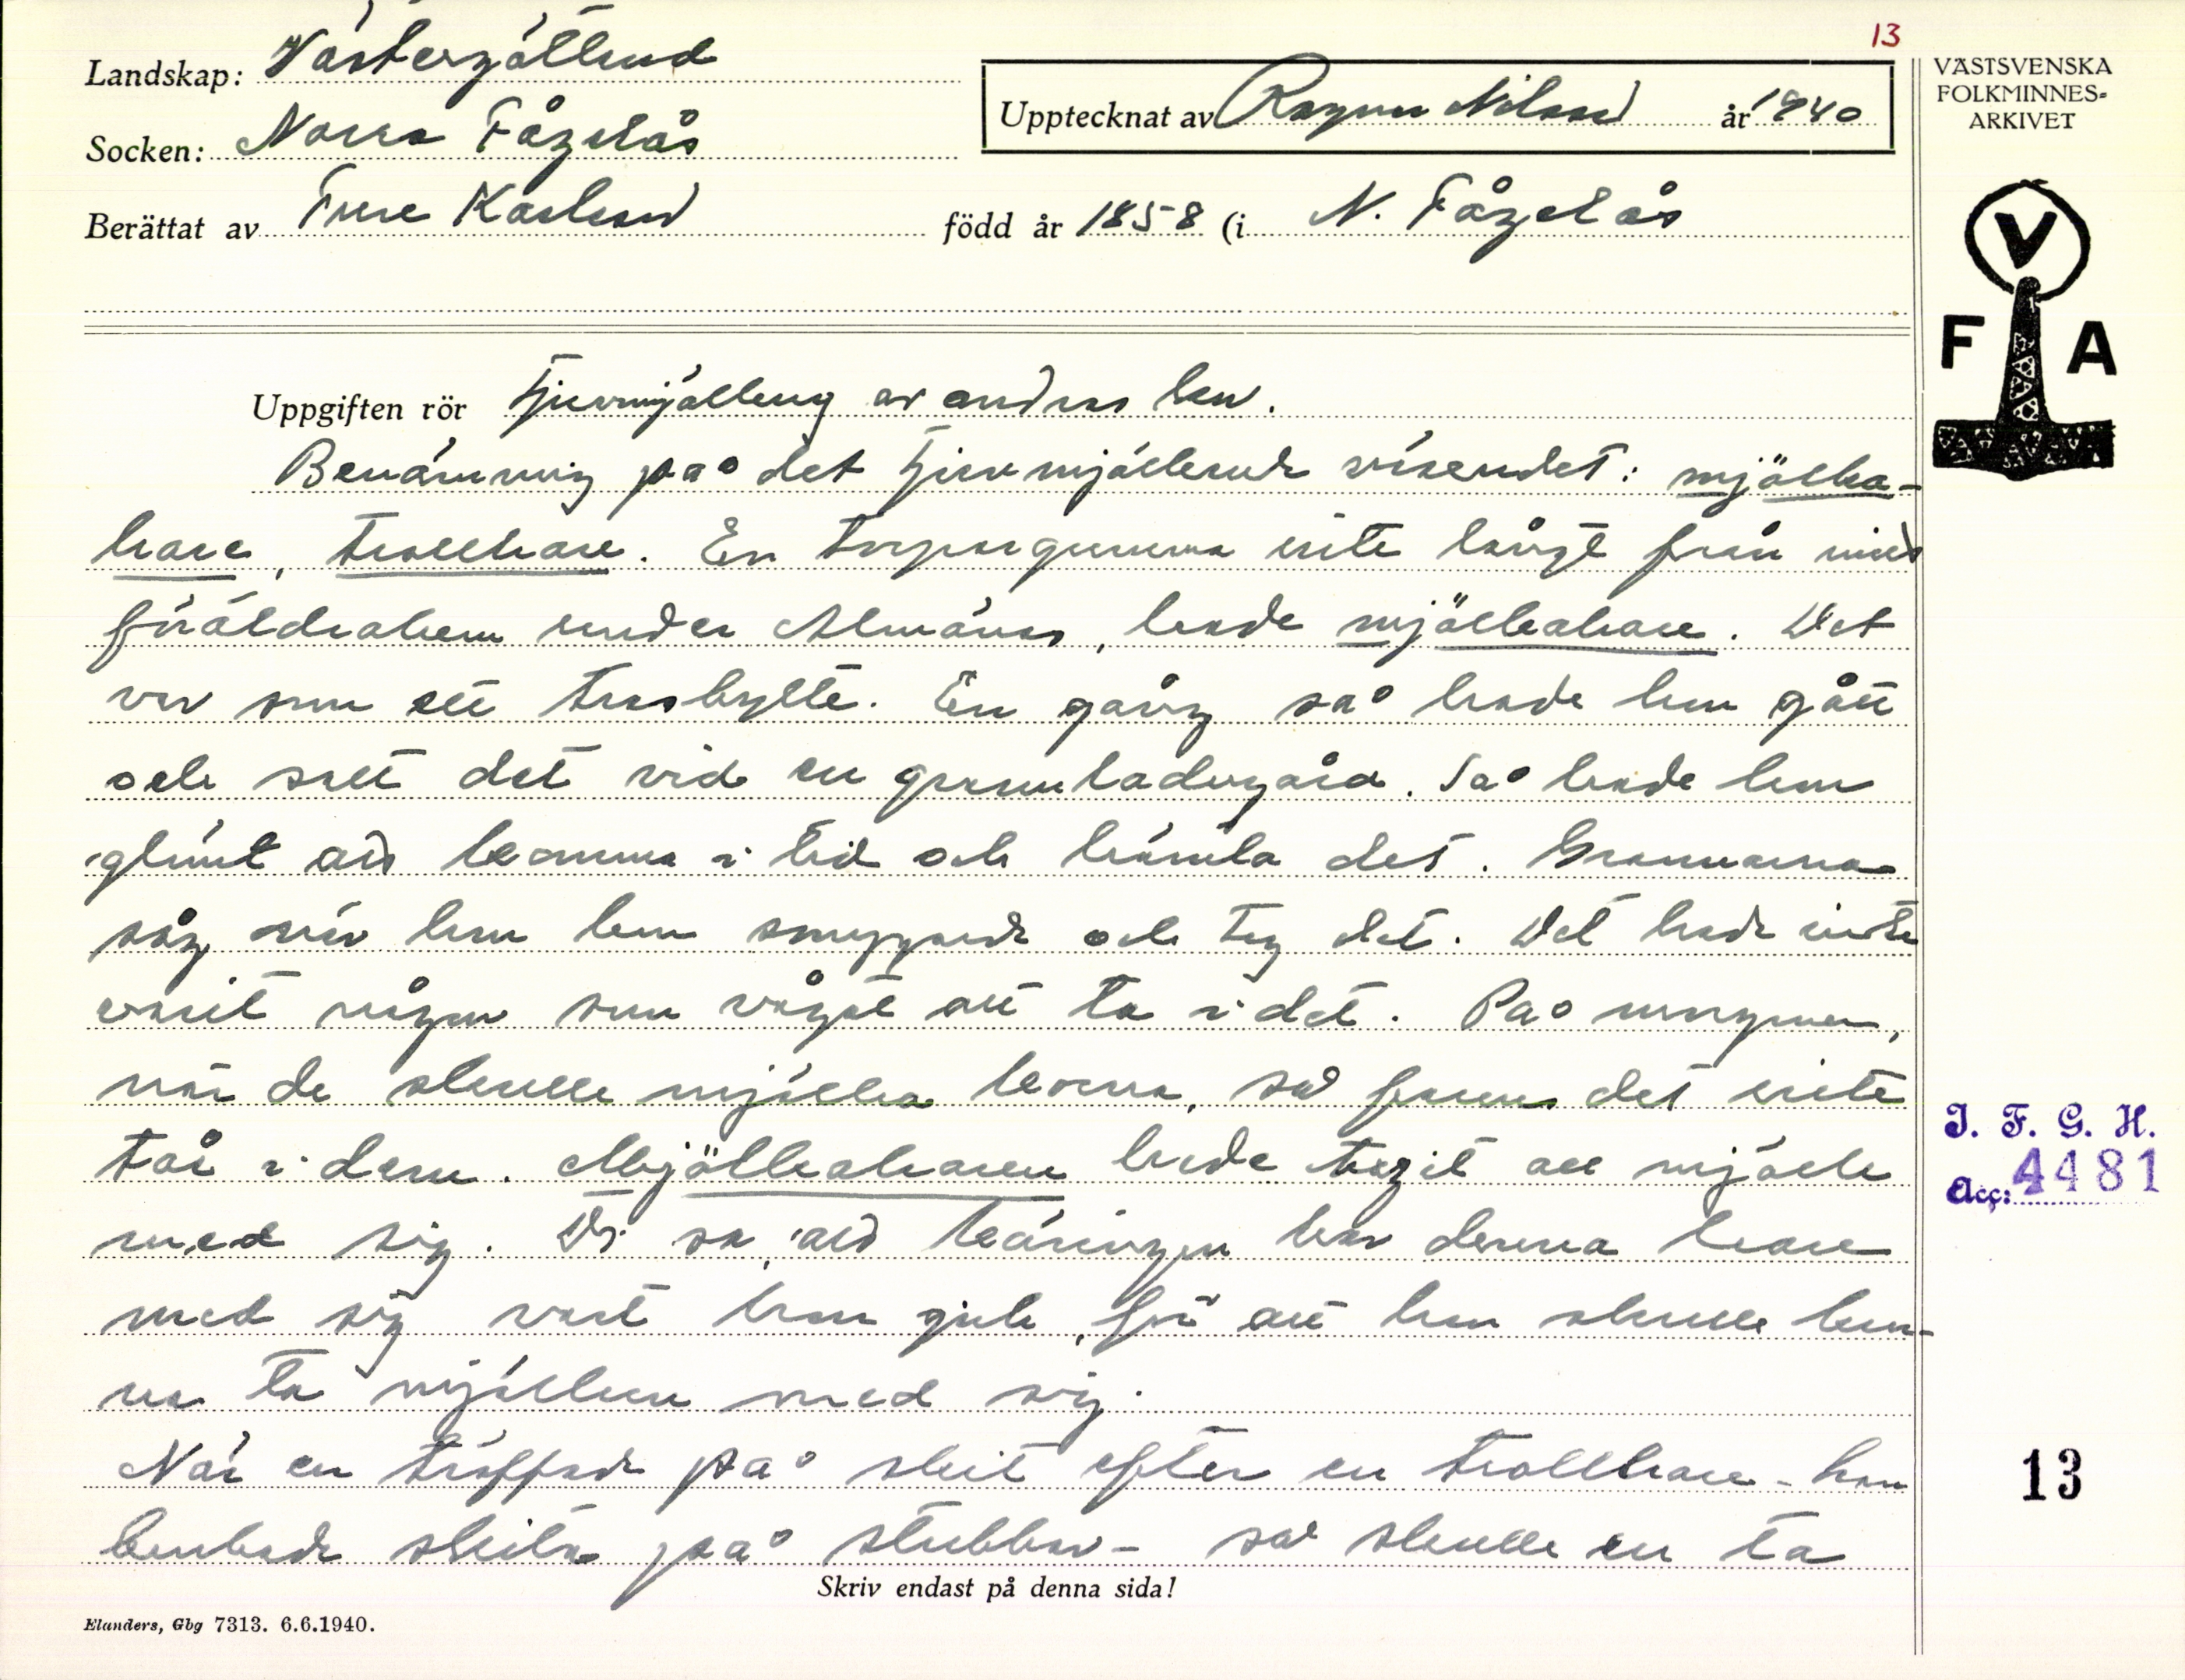 13
Landskap: Västergötland
Socken: Norra Fågelås
Berättat av Frans Karlsson
Upptecknat av Ragnar Nilsson år 1940
född år 1858 (i N. Fågelås
VÄSTSVENSKA
FOLKMINNES=
ARKIVET
V
F A
Uppgiften rör Tjuvmjölkning av andras kor.
Benämning på det tjuvmjölkande väsendet: mjölka-
hare, trollhare. En torpargumma inte långt från mitt
föräldrahem under Almänäs, hade mjölkahare. Det
var som ett trasbylte. En gång så hade hon gått
och satt det vid en grannladugård. Så hade hon
glömt att komma i tid och hämta det. Grannarna
såg när hon kom smygande och tog det. Det hade inte
varit någon som vågat att ta i det. På morgonen,
när de skulle mjölka korna, så fanns det inte
tår i dem. Mjölkaharen hade tagit all mjölk
med sig. De sa, att käringen bar denna hare
med sig vart hon gick, för att hon skulle kun-
na ta mjölken med sig.
När en träffade på skit efter en trollhare - han
brukade skita på stubbar - så skulle en ta
Skriv endast på denna sida!
Elanders, Gbg 7313. 6.6.1940.
I. F. G. H.
Acc: 4481
13